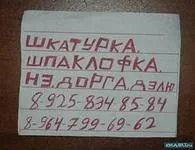 ШКАТУРКА.
ШПАКЛОФКА.
НЭ.ДОРГА.ДЭЛЮ.
8-925-834-85-84
8-964-799-69-62